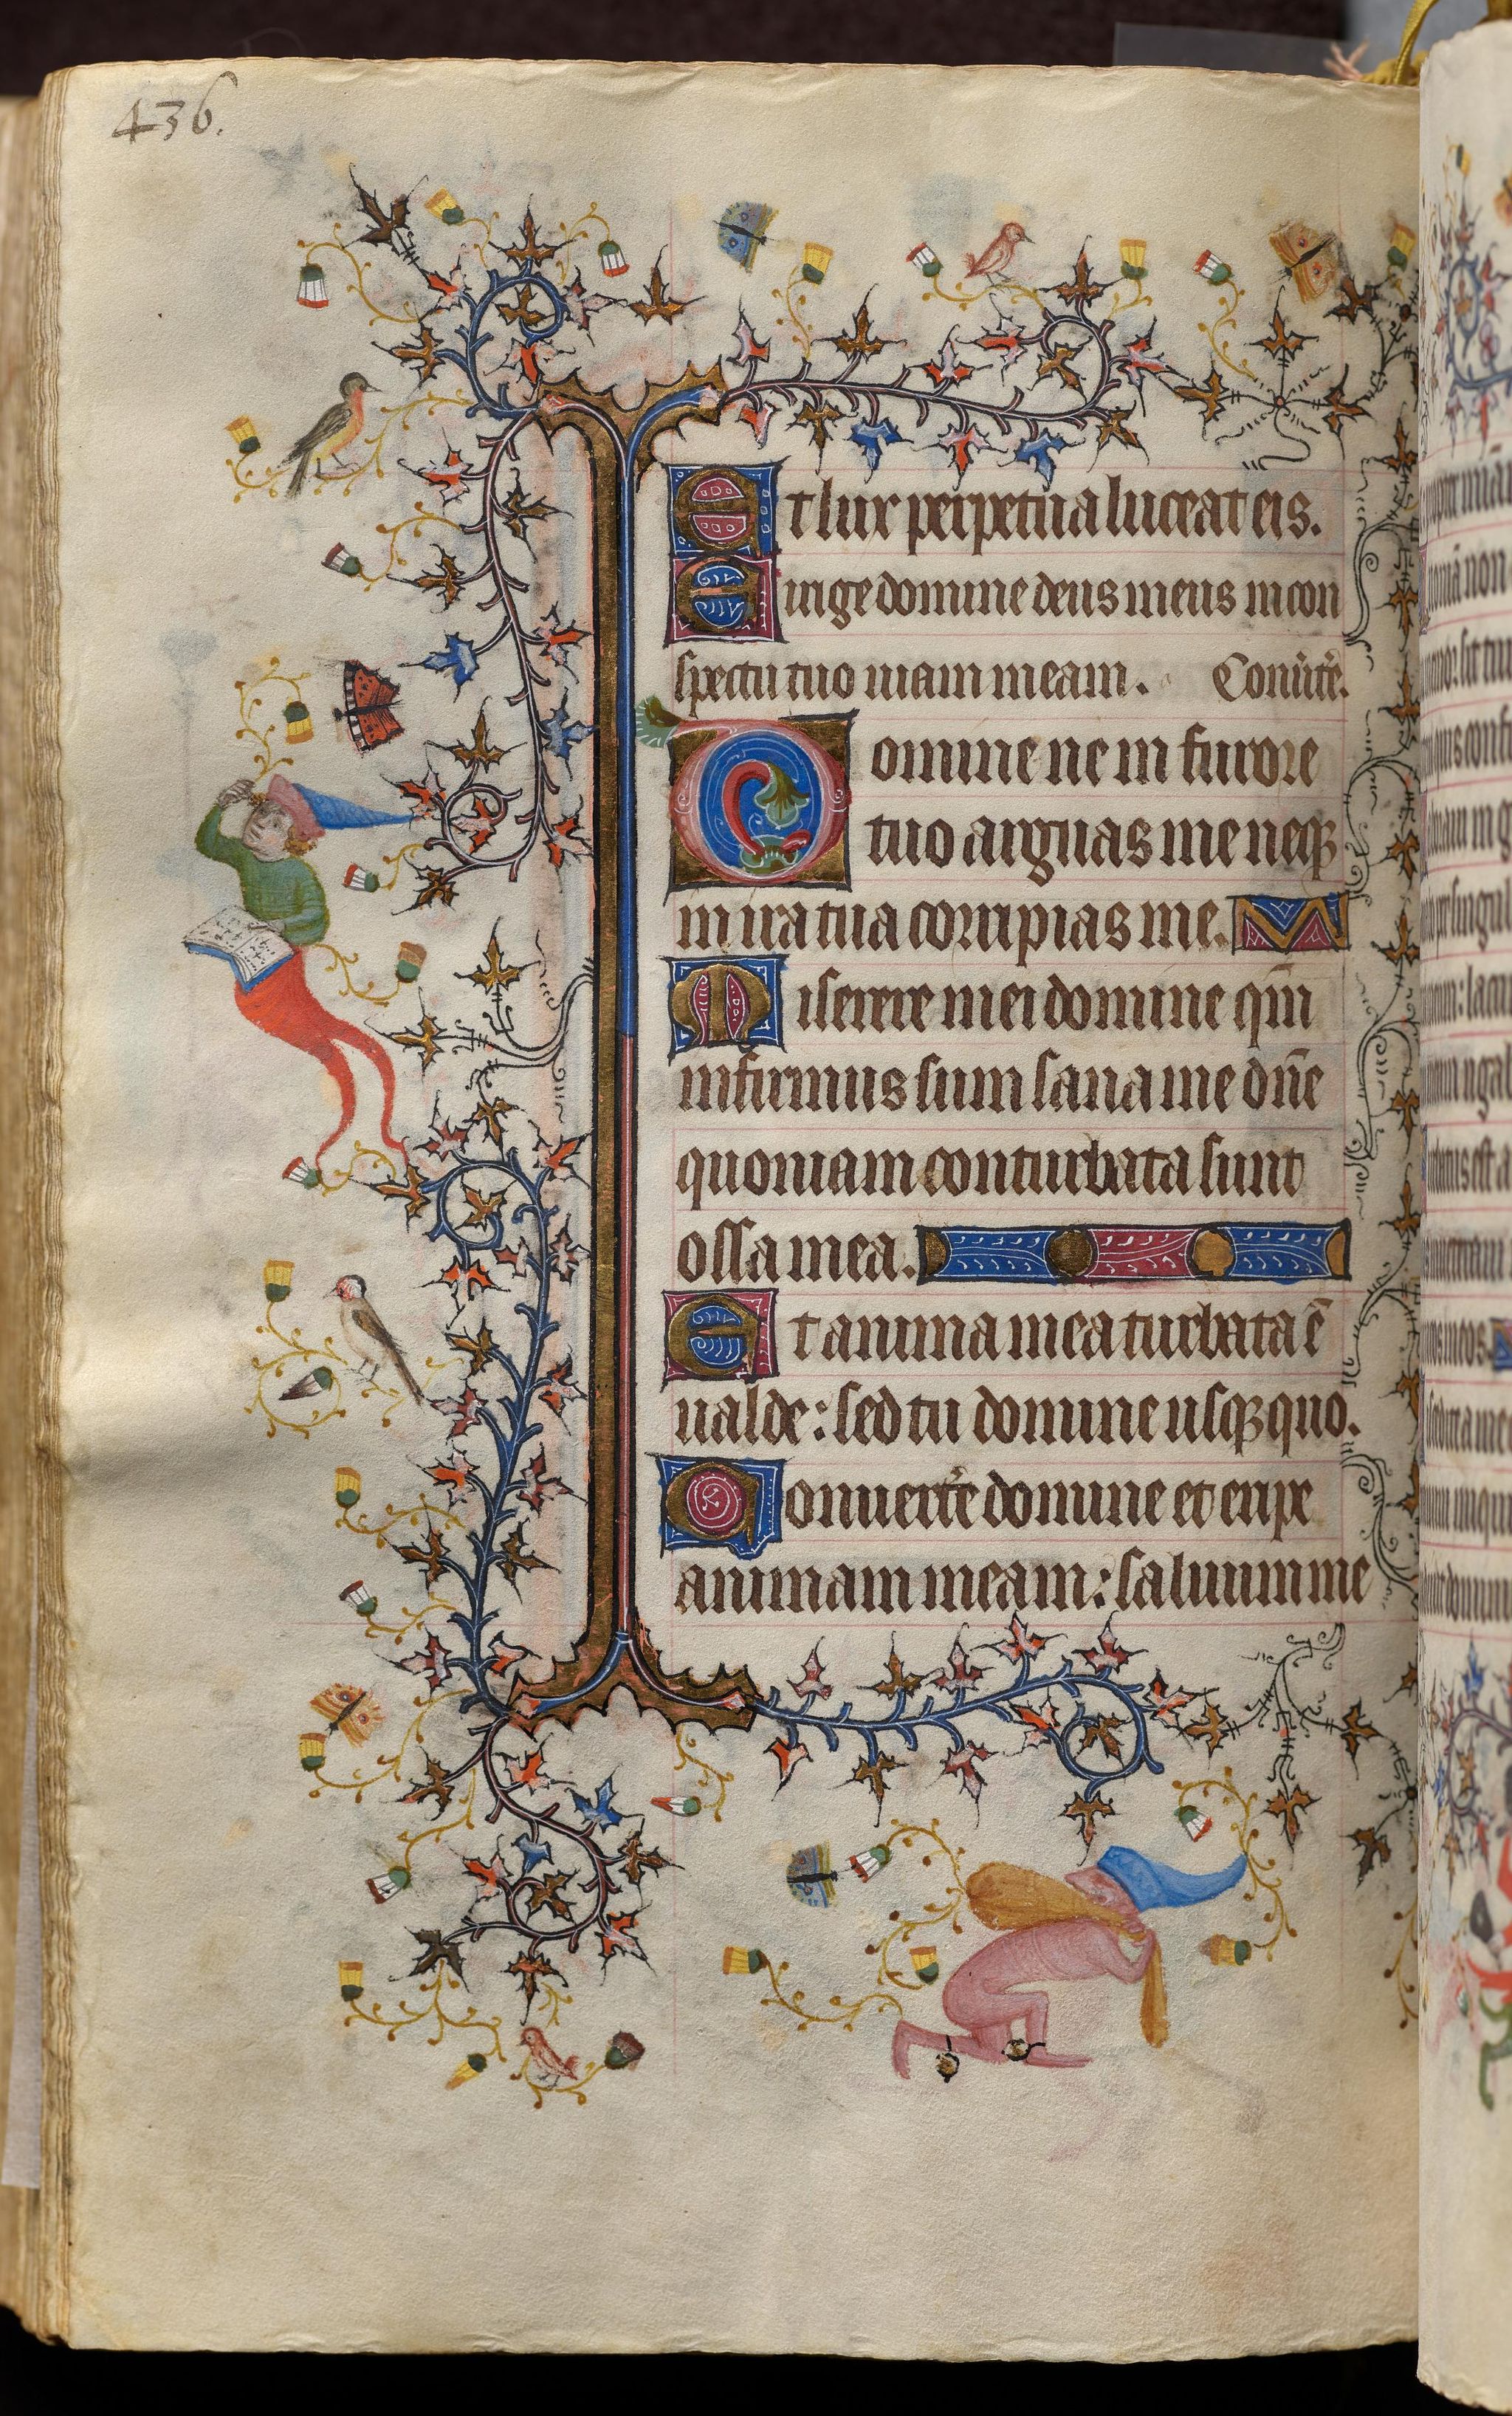 436.
Et lux perpetua luceat eis.
Dirige domine deus meus in con
spectu tuo uiam meam. Conũtẽ.
Domine ne in furore
tuo arguas me neqꝫ
in ira tua corripias me.
Miserere mei domine qm̄
infirmus sum sana me dñe
quoniam conturbata sunt
ossa mea.
Et anima mea turbata ē
ualde: sed tu domine usqꝫ quo.
Conuerte domine et eripe
animam meam: saluum me